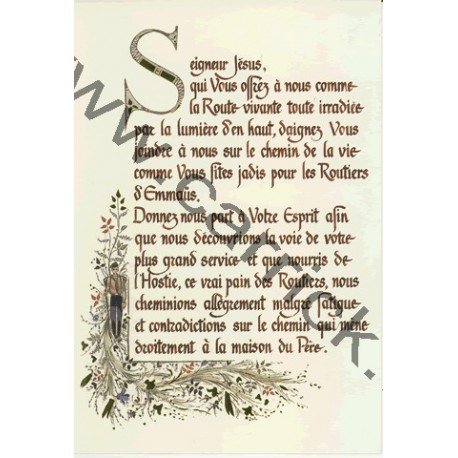 Seigneur Jésus,
qui Vous offrez à nous comme
la Route vivante toute irradiée
par la lumière d'en haut, daignez Vous
joindre à nous sur le chemin de la vie
comme Vous fites jadis pour les Routiers
d'Emmaüs.
Donnez nous part à Votre Esprit afin
que nous découvrions la voie de votre
plus grand service et que nourris de
l'Hostie, ce vrai pain des Routiers, nous
cheminions allègrement malgré fatigue
et contradictions sur le chemin qui mène
droitement à la maison du Père.
www.carrick.